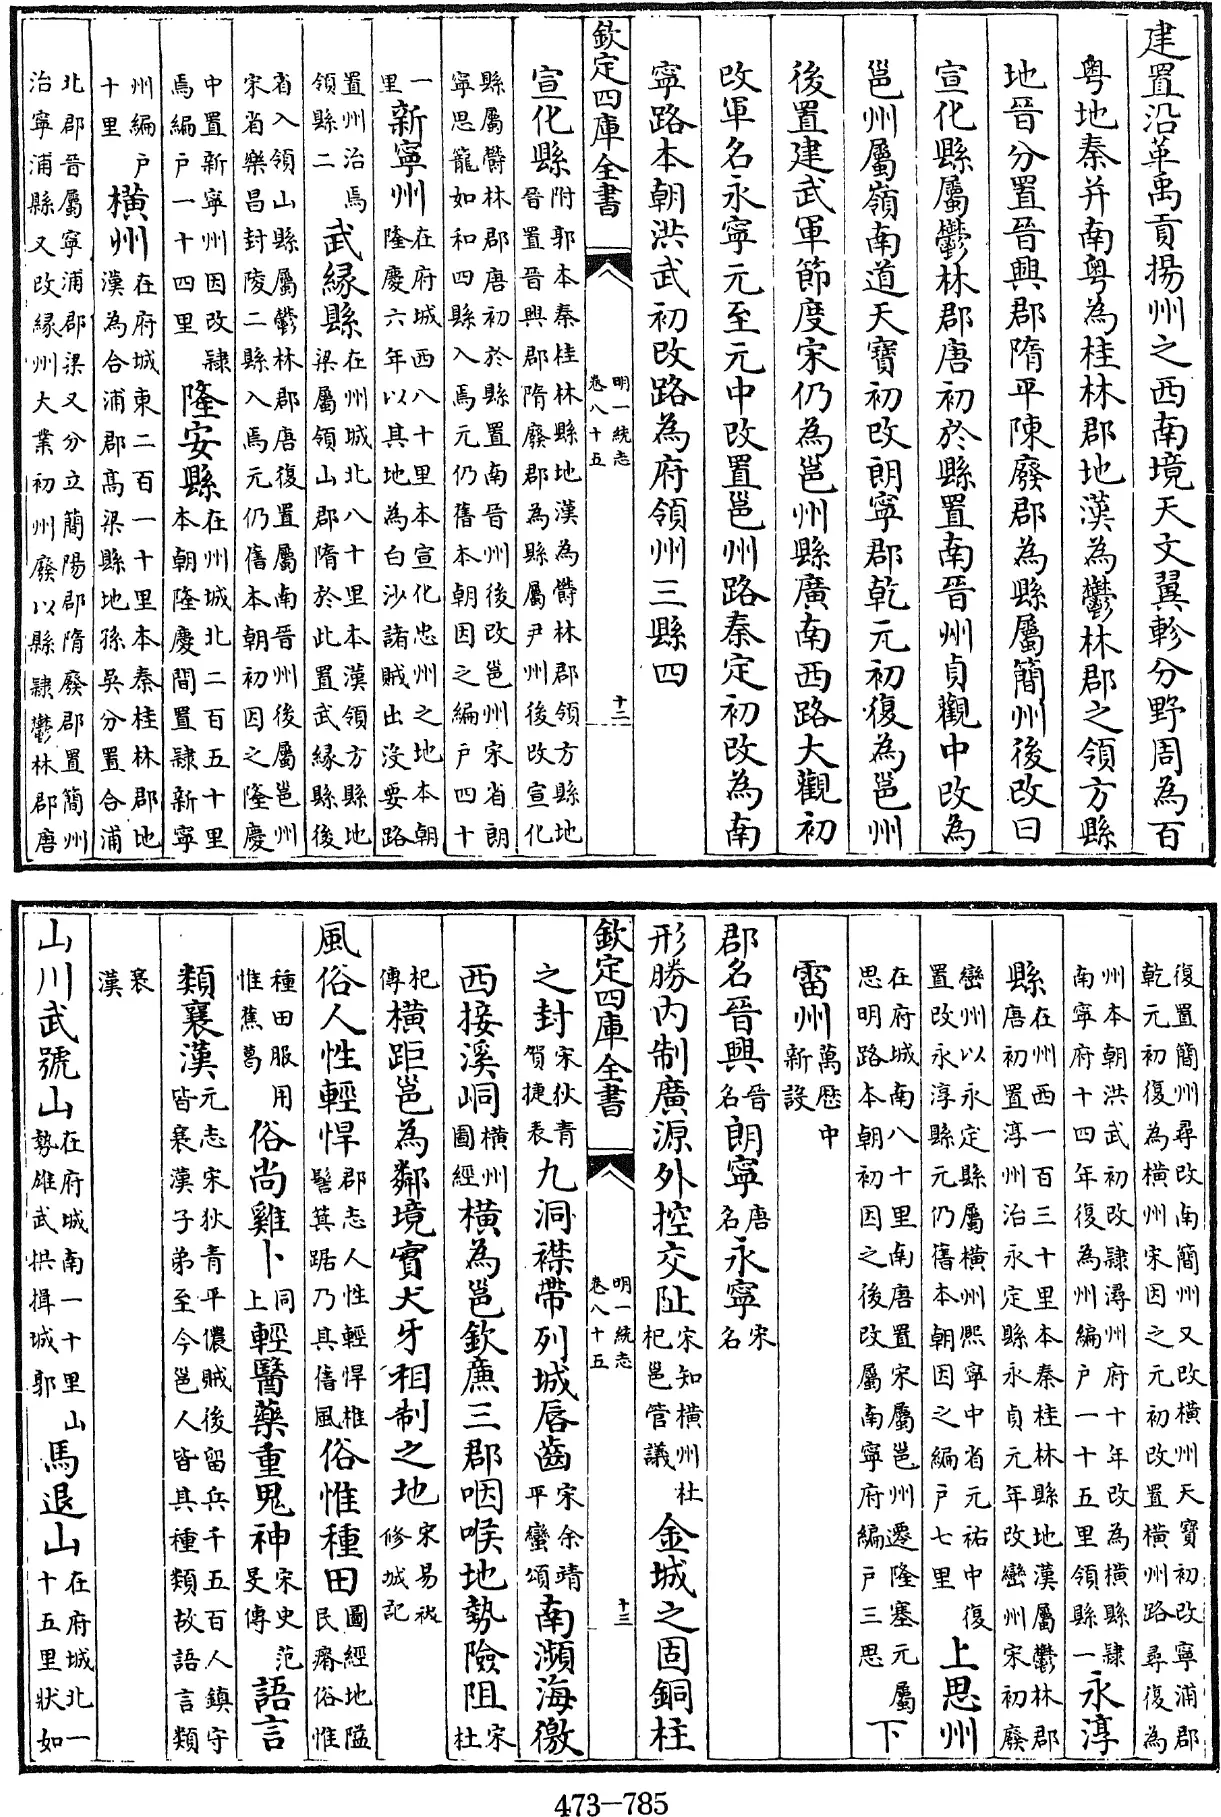 建置沿革禹貢揚州之西南境天文翼軫分野周為百
粤地秦并南粤為桂林郡地漢為鬱林郡之領方縣
地晉分置晉興郡隋平陳廢郡為縣屬簡州後改曰
宣化縣屬鬱林郡唐初於縣置南晉州貞觀中改為
邕州屬嶺南道天寶初改朗寧郡乾元初復為邕州
後置建武軍節度宋仍為邕州縣廣南西路大觀初
改軍名永寧元至元中改置邕州路秦定初改為南
寧路本朝洪武初改路為府領州三縣四
欽定四庫全書 明一統志 卷八十五 十二
宣化縣附郭本秦桂林縣地漢為欝林郡領方縣地晉置晉興郡隋廢郡為縣屬尹州後改宣化
縣屬欝林郡唐初於縣置南晉州後改邕州宋省朗寧思籠如和四縣入焉元仍舊本朝因之編户四十
一里新寧州在府城西八十里本宣化忠州之地本朝隆慶六年以其地為白沙諸賊出沒要路
置州治焉領縣二武緣縣在州城北八十里本漢領方縣地梁屬領山郡隋於此置武緣縣後
省入領山縣屬鬱林郡唐復置屬南晉州後屬邕州宋省樂昌封陵二縣入焉元仍舊本朝初因之隆慶
中置新寧州因改隸焉編户一十四里隆安縣在州城北二百五十里本朝隆慶間置隸新寧
州編户十里橫州在府城東二百一十里本秦桂林郡地漢為合浦郡高梁縣地孫吳分置合浦
北郡晉屬寧浦郡梁又分立簡陽郡隋廢郡置簡州治寧浦縣又改緣州大業初州廢以縣隸鬱林郡唐
復置簡州尋改南簡州又改橫州天寶初改寧浦郡乾元初復為橫州宋因之元初改置橫州路尋復為
州本朝洪武初改隸潯州府十年改為橫縣隸南寧府十四年復為州編户一十五里領縣一永淳
縣在州西一百三十里本秦桂林縣地漢屬鬱林郡唐初置淳州治永定縣永貞元年改巒州宋初廢
巒州以永定縣屬橫州熙寧中省元祐中復置改永淳縣元仍舊本朝因之編户七里上思州
在府城南八十里南唐置宋屬邕州遷隆塞元屬思明路本朝初因之後改屬南寧府編户三思下
雷州萬歷中新設
郡名晉興晉名朗寧唐名永寧宋名
形勝内制廣源外控交阯宋知橫州杜杞邕管議金城之固銅柱
欽定四庫全書 明一統志 卷八十五 十三
之封宋狄青賀捷表九洞襟帶列城唇齒宋余靖平蠻頌南瀕海徼
西接溪峒橫州圖經橫為邕欽亷三郡咽喉地勢險阻宋杜
杞傳橫距邕為鄰境實犬牙相制之地宋易祓修城記
風俗人性輕悍郡志人性輕悍椎髻箕踞乃其舊風俗惟種田圖經地隘民瘠俗惟
種田服用惟蕉葛俗尚雞卜同上輕醫藥重鬼神宋史范旻傳語言
類襄漢元志宋狄青平儂賊後留兵千五百人鎮守皆襄漢子弟至今邕人皆其種類故語言類
襄漢
山川武號山在府城南一十里山勢雄武拱揖城郭馬退山在府城北一十五里狀如
473-785